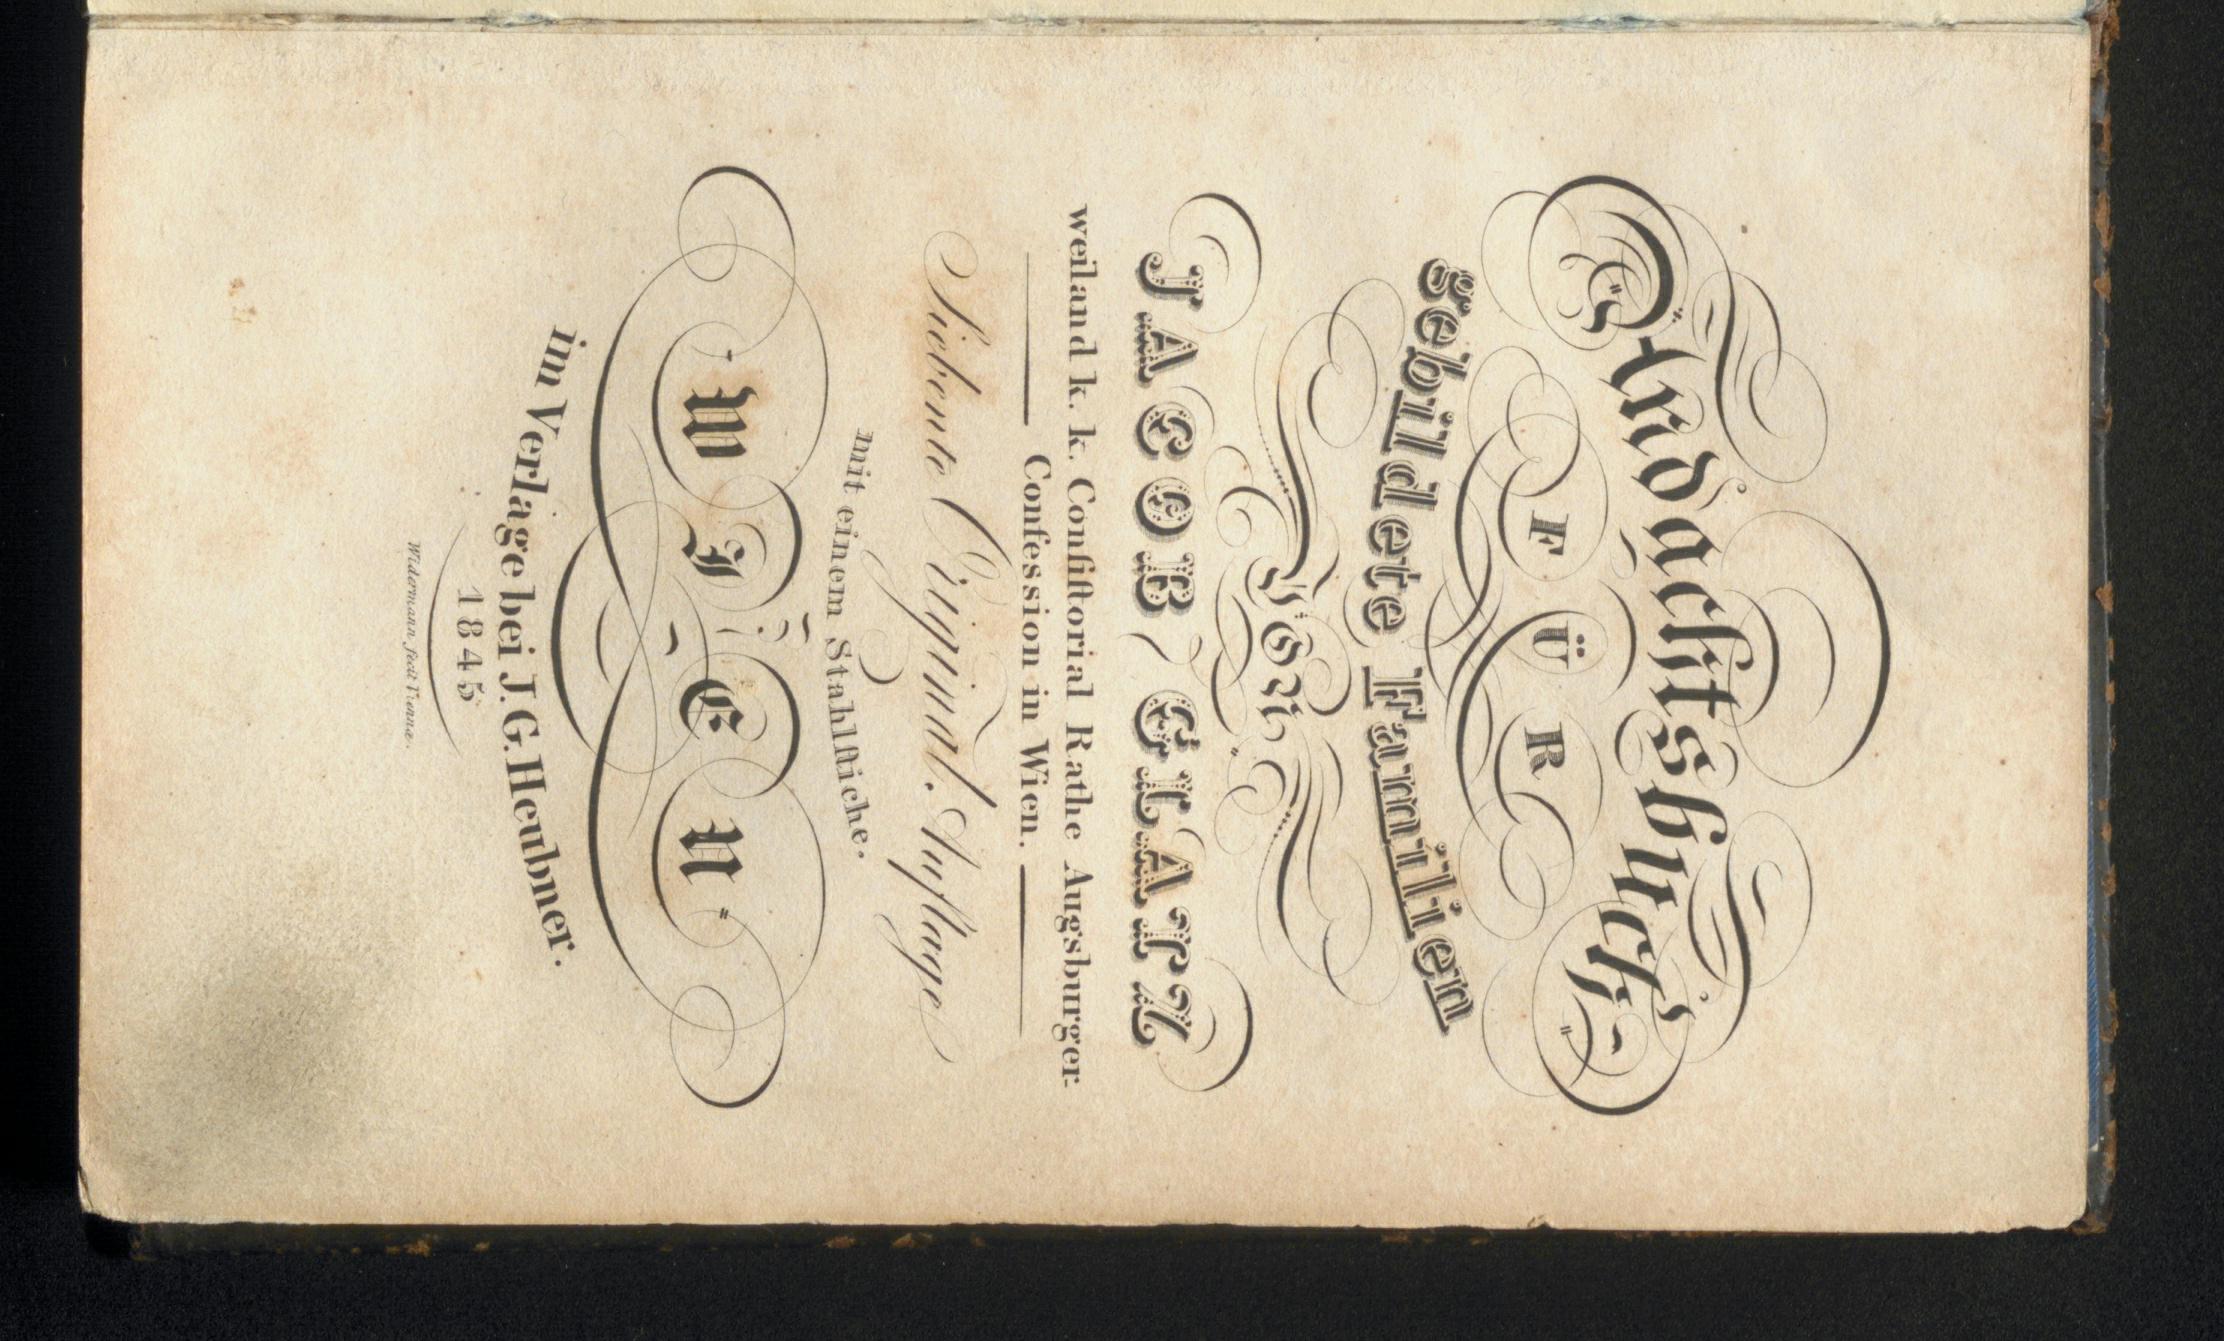 Andachtsbuch
FÜR
gebildete Familien
VON
JACOB GLATZ
weiland k. k. Conſiſtorial Rathe Augsburger
Confession in Wien.
Siebente Original-Auflage
mit einem Stahlſtiche.
WIEN
im Verlage bei J. G. Heubner.
1845
Widermann fecit Viennæ.